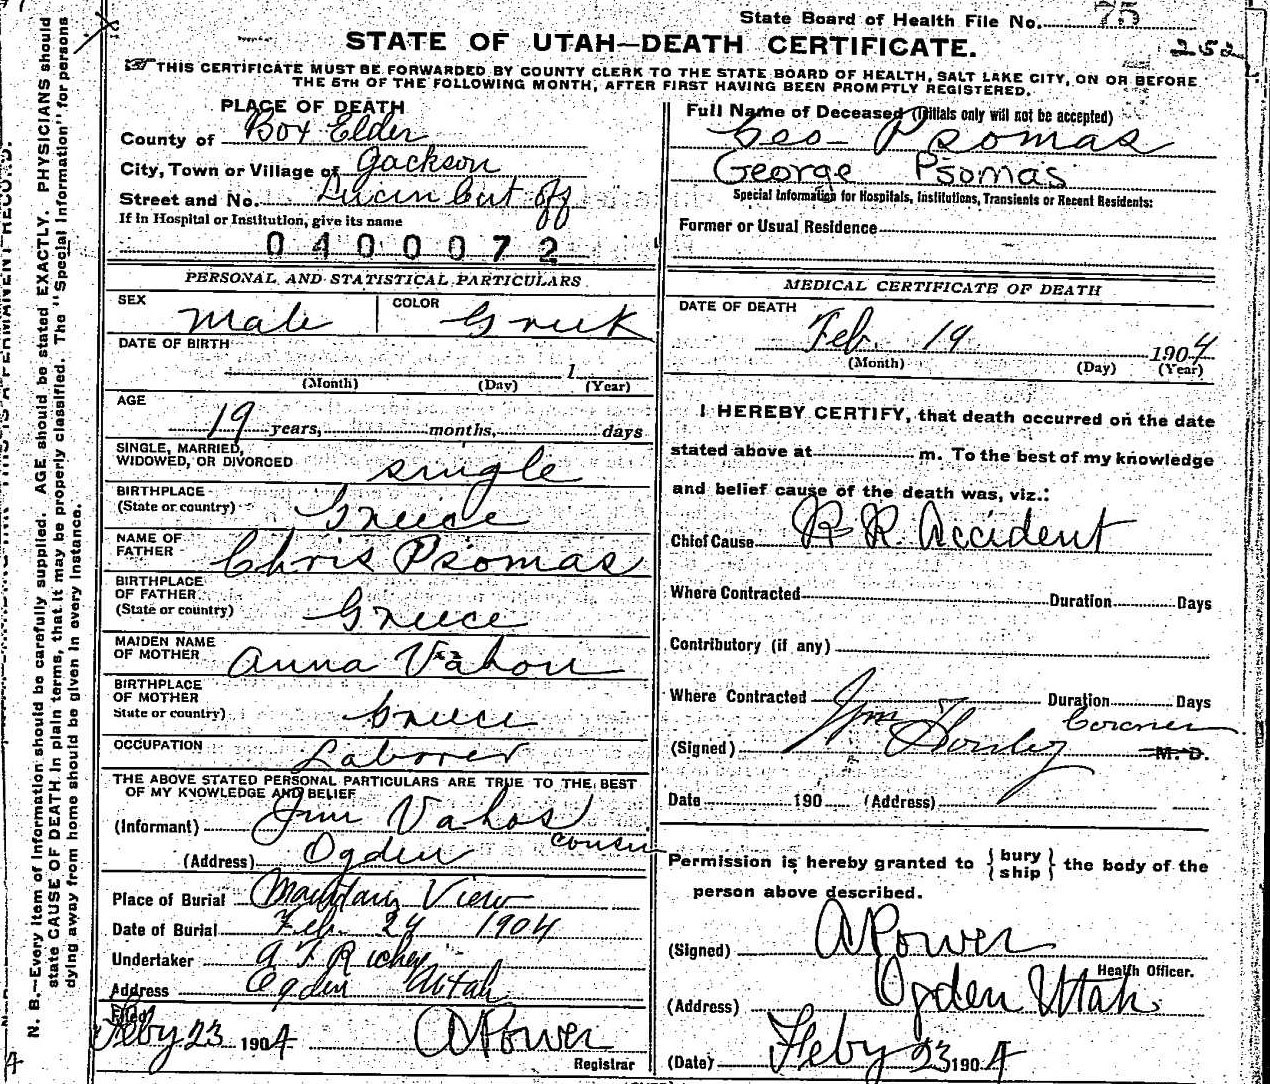 State Board of Health File No. 75
252
STATE OF UTAH—DEATH CERTIFICATE.
THIS CERTIFICATE MUST BE FORWARDED BY COUNTY CLERK TO THE STATE BOARD OF HEALTH, SALT LAKE CITY, ON OR BEFORE
THE 5TH OF THE FOLLOWING MONTH, AFTER FIRST HAVING BEEN PROMPTLY REGISTERED.
N. B.—Every item of information should be carefully supplied. AGE should be stated EXACTLY. PHYSICIANS should
state CAUSE OF DEATH in plain terms, that it may be properly classified. The "Special Information" for persons
dying away from home should be given in every instance.
PLACE OF DEATH
County of Box Elder
City, Town or Village of Jackson
Street and No. Lucin Cut off
If in Hospital or Institution, give its name
0400072
PERSONAL AND STATISTICAL PARTICULARS
SEX Male COLOR Greek
DATE OF BIRTH
1
(Month) (Day) (Year)
AGE
19 years, months, days
SINGLE, MARRIED,
WIDOWED, OR DIVORCED single
BIRTHPLACE
(State or country) Greece
NAME OF
FATHER Chris Psomas
BIRTHPLACE
OF FATHER
(State or country) Greece
MAIDEN NAME
OF MOTHER Anna Vahou
BIRTHPLACE
OF MOTHER
State or country) Greece
OCCUPATION Laborer
THE ABOVE STATED PERSONAL PARTICULARS ARE TRUE TO THE BEST
OF MY KNOWLEDGE AND BELIEF
(Informant) Jim Vahos
cousin
(Address) Ogden
Place of Burial Mountain View
Date of Burial Feb. 24 1904
Undertaker A. F. Richey
Address Ogden Utah
Filed
Feby 23 1904 A Power
Registrar
Full Name of Deceased (Initials only will not be accepted)
Geo- Psomas
George Psomas
Special Information for Hospitals, Institutions, Transients or Recent Residents:
Former or Usual Residence
MEDICAL CERTIFICATE OF DEATH
DATE OF DEATH
Feb. 19 1904
(Month) (Day) (Year)
I HEREBY CERTIFY, that death occurred on the date
stated above at m. To the best of my knowledge
and belief cause of the death was, viz.:
Chief Cause R. R. Accident
Where Contracted Duration Days
Contributory (if any)
Where Contracted Duration Days
Coroner
(Signed) Wm M. D.
Date 190 (Address)
Permission is hereby granted to { bury ship } the body of the
person above described.
(Signed) A Power
Health Officer.
(Address) Ogden Utah.
(Date) Feby 23 1904